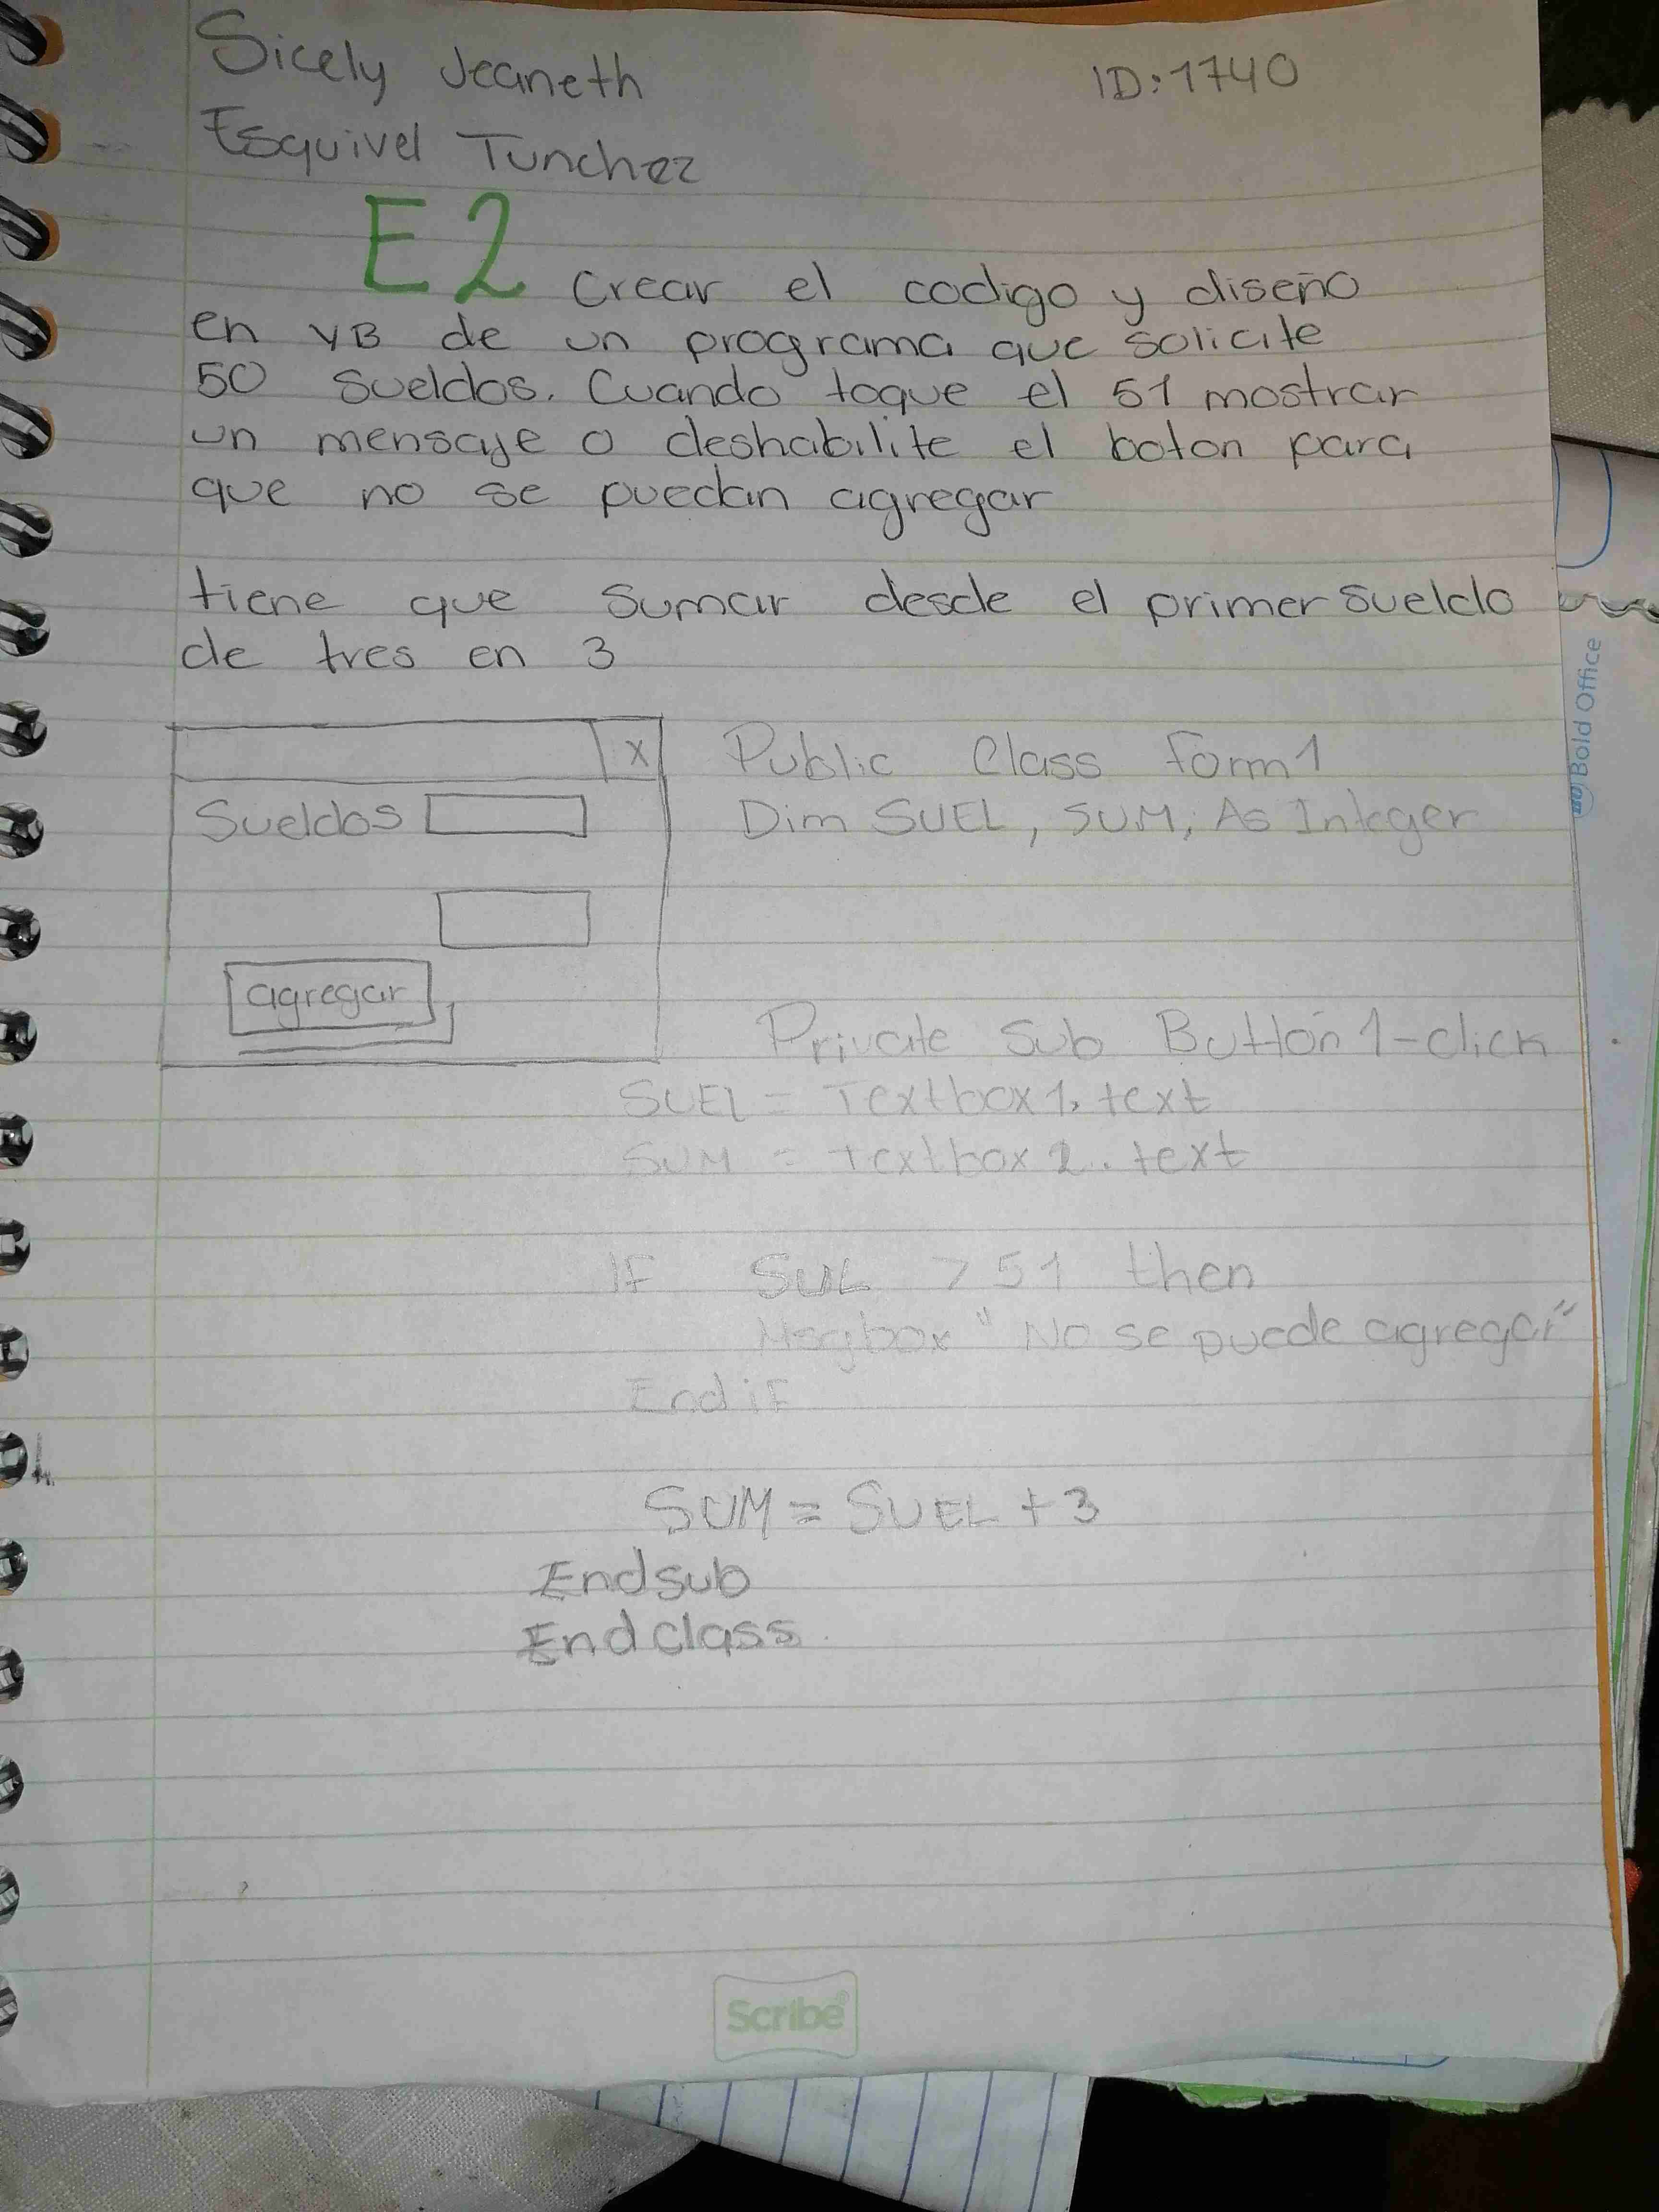 Sicely Jeaneth
ID:1740
Esquivel Tunchez
E2 Crear el codigo y diseño
en VB de un programa que solicite
50 sueldos. Cuando toque el 51 mostrar
un mensaje o deshabilite el boton para
que no se puedan agregar
tiene que sumar desde el primer sueldo
de tres en 3
X
Sueldos
agregar
Public Class Form1
Dim SUEL, SUM, As Integer
Private Sub Button1-click
SUEL = Textbox1.text
SUM = textbox2..text
IF SUL > 51 then
Msgbox "No se puede agregar"
End if
SUM = SUEL + 3
Endsub
Endclass.
Bold Office
Scribe®